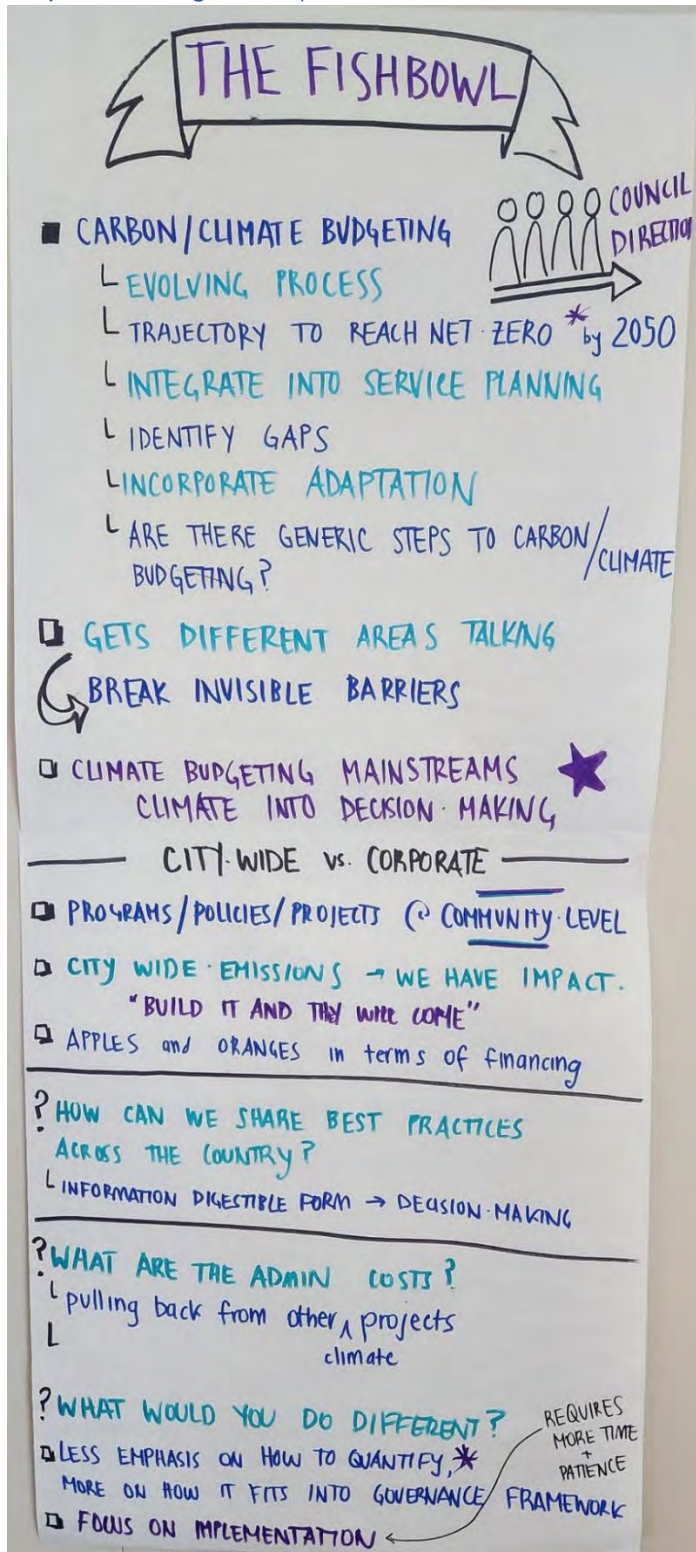 THE FISHBOWL
COUNCIL
DIRECTION
CARBON/CLIMATE BUDGETING
EVOLVING PROCESS
TRAJECTORY TO REACH NET·ZERO * by 2050
INTEGRATE INTO SERVICE PLANNING
IDENTIFY GAPS
INCORPORATE ADAPTATION
ARE THERE GENERIC STEPS TO CARBON/CLIMATE
BUDGETING?
GETS DIFFERENT AREAS TALKING
BREAK INVISIBLE BARRIERS
CLIMATE BUDGETING MAINSTREAMS
CLIMATE INTO DECISION·MAKING
CITY·WIDE vs. CORPORATE
PROGRAMS/POLICIES/PROJECTS @ COMMUNITY·LEVEL
CITY WIDE·EMISSIONS → WE HAVE IMPACT.
"BUILD IT AND THEY WILL COME"
APPLES and ORANGES in terms of financing
? HOW CAN WE SHARE BEST PRACTICES
ACROSS THE COUNTRY?
INFORMATION DIGESTIBLE FORM → DECISION·MAKING
? WHAT ARE THE ADMIN COSTS?
pulling back from other ^ projects
climate
? WHAT WOULD YOU DO DIFFERENT?
REQUIRES
MORE TIME
+
PATIENCE
LESS EMPHASIS ON HOW TO QUANTIFY, *
MORE ON HOW IT FITS INTO GOVERNANCE FRAMEWORK
FOCUS ON IMPLEMENTATION ←